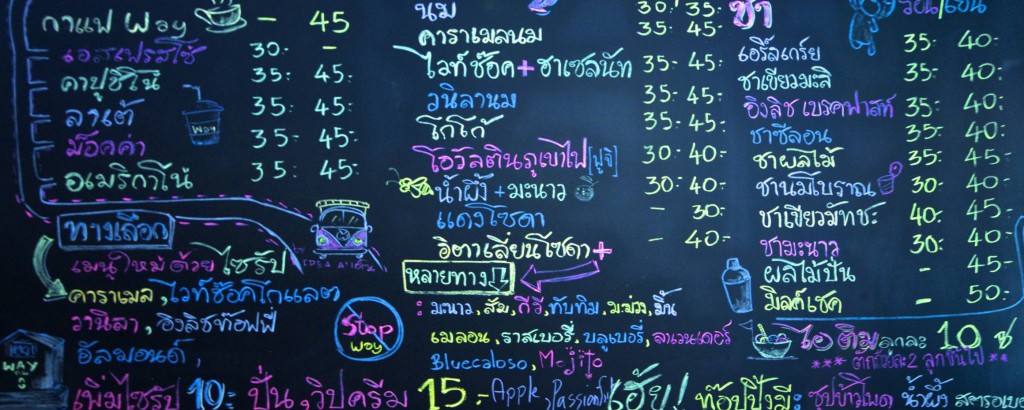 กาแฟ Way - 45
เอสเพรสโซ่ 30.- -
คาปูชิโน่ 35.- 45.-
ลาเต้ 35.- 45.-
ม็อคค่า 35.- 45.-
อเมริกาโน่ 35.- 45.-
Way
ทางเลือก
เมนูใหม่ด้วย ไซรัป
คาราเมล, ไวท์ช็อคโกแลต
วานิลา, อิงลิชท๊อฟฟี่
อัลมอนด์,
Stop Way
WAY
เพิ่มไซรัป 10.- ปั่น, วิปครีม 15.-
นม 30.- 35.-
คาราเมลนม 35.- 45.-
ไวท์ช๊อค+ชาเซสนัท 35.- 45.-
วนิลานม 35.- 45.-
โกโก้ 35.- 45.-
โอวัลตินภูเขาไฟ [ฟูจิ] 30.- 40.-
น้ำผึ้ง+มะนาว 30.- 40.-
แดงโซดา - 30.-
อิตาเลี่ยนโซดา+ - 40.-
หลายทาง
: มะนาว, ส้ม, กีวี, ทับทิม, มะม่วง, มิ้น
เมลอน, ราสเบอรี่, บลูเบอรี่, ลาเวนเดอร์
Bluecaloso, Mojito
Apple, Passionfr
ชา ร้อน/เย็น
เอิร์ลเกร์ย 35.- 40.-
ชาเขียวมะลิ 35.- 40.-
อิงลิช เบรคฟาสท์ 35.- 40.-
ชาซีลอน 35.- 40.-
ชาผลไม้ 35.- 45.-
ชานมโบราณ 30.- 40.-
ชาเขียวมัทชะ 40.- 45.-
ชามะนาว 30.- 40.-
ผลไม้ปั่น - 45.-
มิลค์เชค - 50.-
ไอติม ลูกละ 10 ฿
*** ตักถ้วยละ 2 ลูกขึ้นไป ***
เฮ้ย! ท๊อปปิ้งมี: ซุปข้าวโพด น้ำผึ้ง สตรอเบอ